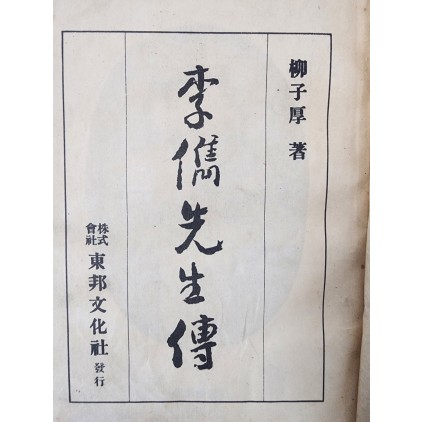 柳子厚 著
李儁先生傳
株式會社 東邦文化社 發行